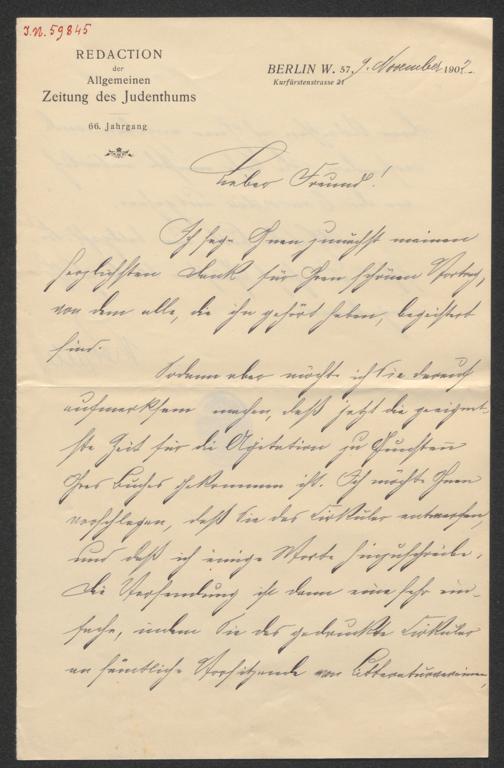 I.N. 59845
REDACTION
der
Allgemeinen
Zeitung des Judenthums
66. Jahrgang
BERLIN W. 57, 9. November 1902.
Kurfürstenstrasse 21
Lieber Freund!
Ich sage Ihnen zunächst meinen
herzlichsten Dank für Ihren schönen Vortrag,
von dem alle, die ihn gehört haben, begeistert
sind.
Sodann aber möchte ich Sie darauf
aufmerksam machen, daß jetzt die geeignet-
ste Zeit für die Agitation zu Gunsten
Ihres Buches gekommen ist. Ich möchte Ihnen
vorschlagen, daß Sie das Cirkular entwerfen,
und daß ich einige Worte hinzuschreibe.
Die Versendung ist dann eine sehr ein-
fache, indem Sie das gedruckte Cirkular
an sämtliche Vorsitzende von Litteraturvereinen,